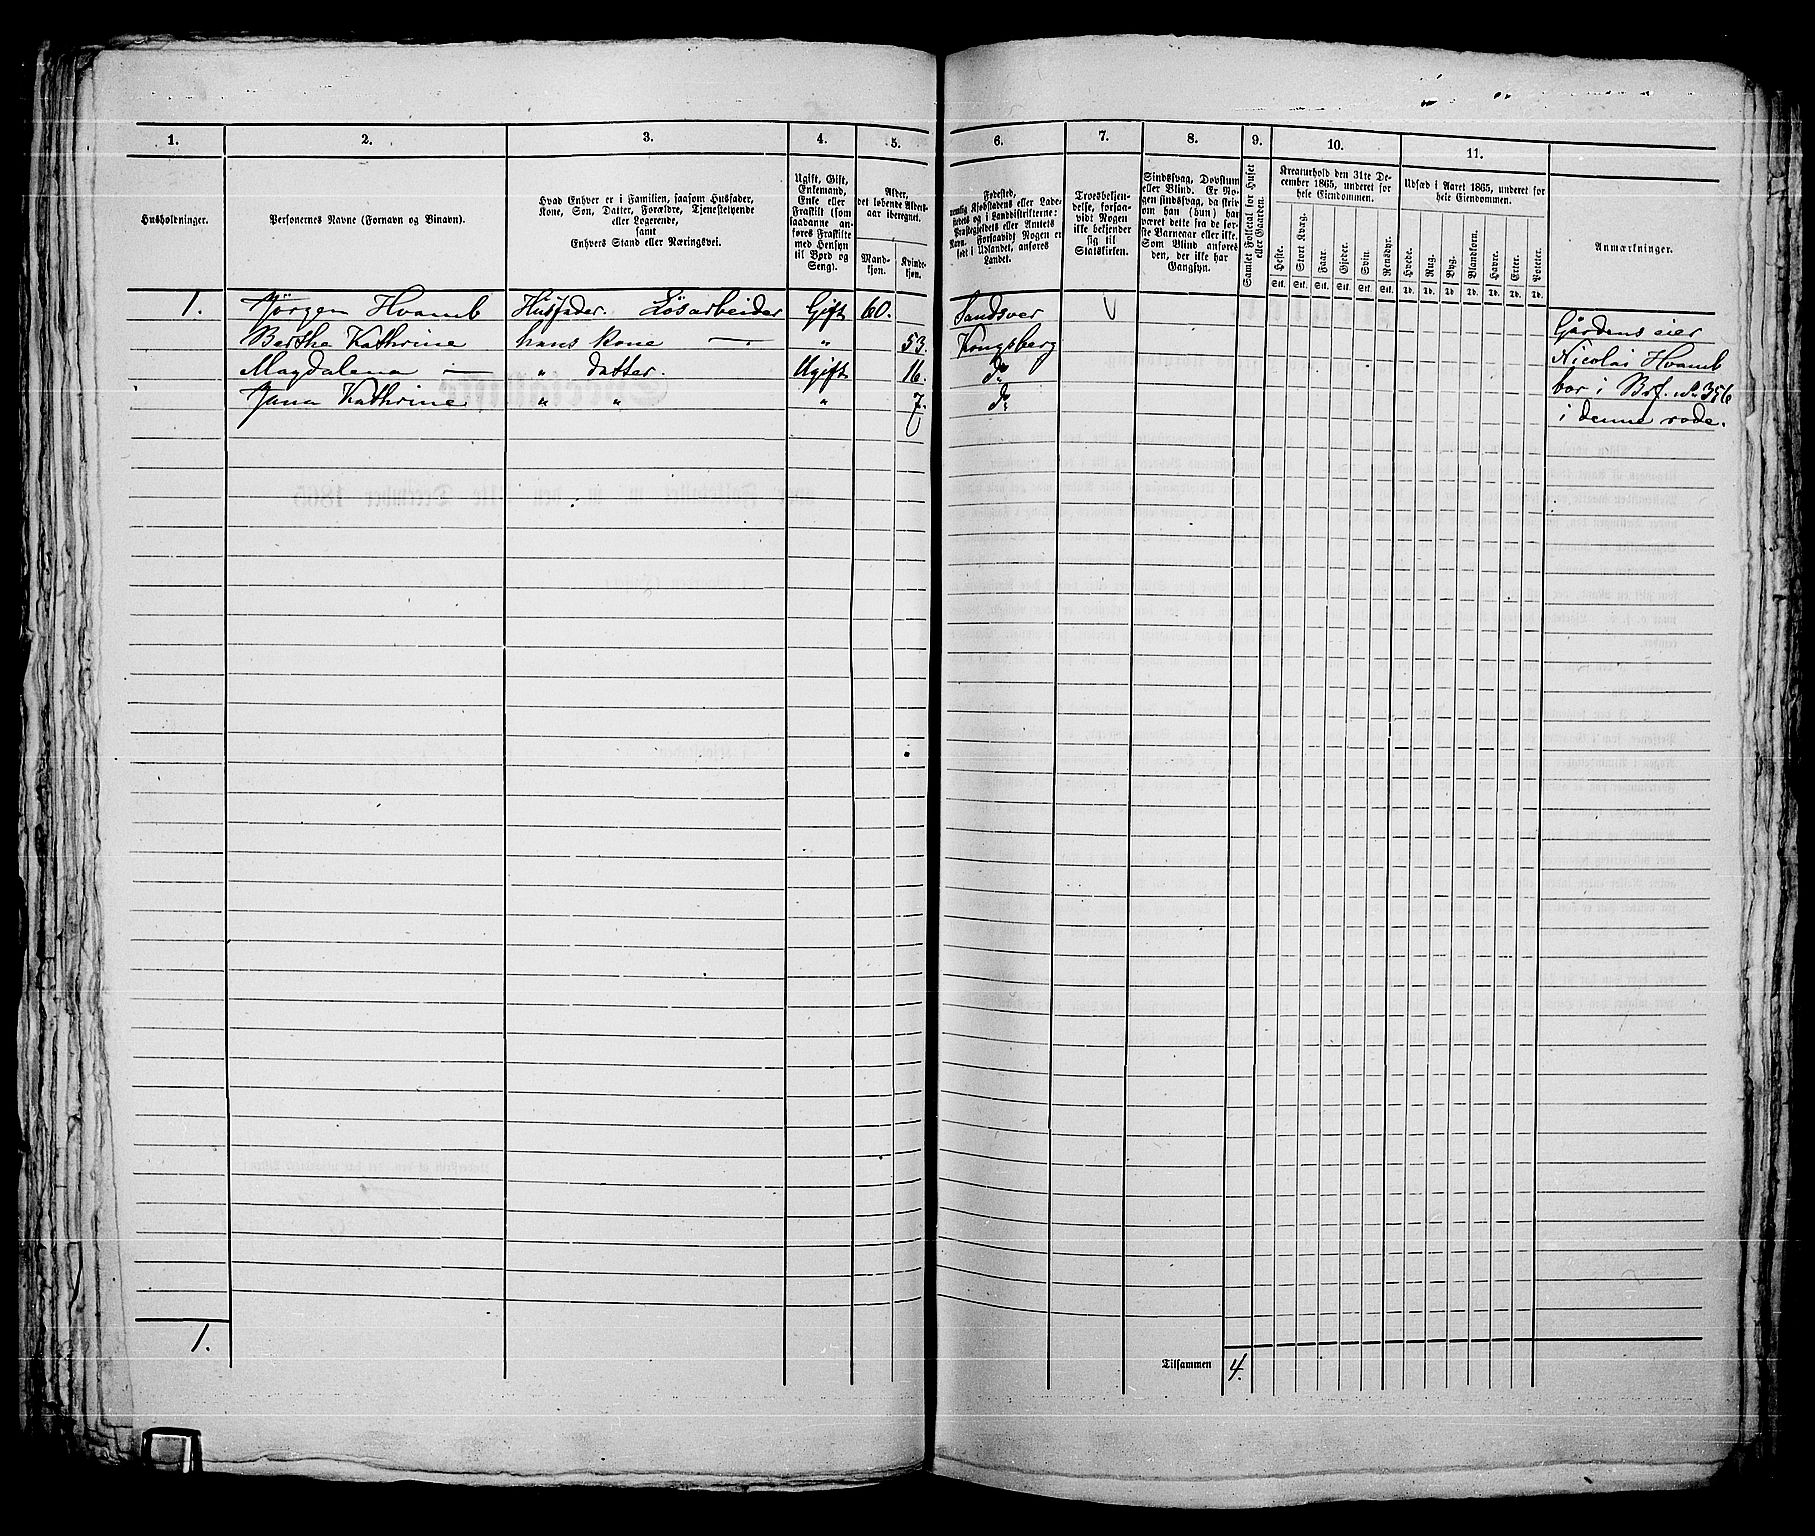 1. 2. 3. 4. 5. 6. 7. 8. 9. 10. 11.
Husholdninger.
Personernes Navne (Fornavn og Binavn).
Hvad Enhver er i Familien, saasom Husfader,
Kone, Søn, Datter, Forældre, Tjenestetyende
eller Logerende,
samt
Enhvers Stand eller Næringsvei.
Ugift, Gift,
Enkemand,
Enke eller
Fraskilt (som
saadanne an-
føres Fraskilte
med Hensyn
til Bord og
Seng).
Alder,
det løbende Alders-
aar iberegnet.
Mand-
kjøn.
Kvinde-
kjøn.
Fødested,
nemlig Kjøbstadens eller Lade-
stedets og i Landdistrikterne:
Præstegjeldets eller Amtets
Navn. Forsaavidt Nogen er
født i Udlandet, anføres
Landet.
Troesbekjen-
delse, forsaa-
vidt Nogen
ikke bekjender
sig til
Statskirken.
Sindssvag, Døvstum
eller Blind. Er No-
gen sindssvag, da skriv
om han (hun) har
været dette fra de før-
ste Barneaar eller ikke.
Som Blind anføres
den, der ikke har
Gangsyn.
Samlet Folketal for Huset
eller Gaarden.
Kreaturhold den 31te De-
cember 1865, underet for
hele Eiendommen.
Heste. Stort Kvæg. Faar. Gjeder. Svin. Rensdyr.
Stk. Stk. Stk. Stk. Stk. Stk.
Udsæd i Aaret 1865, underet for
hele Eiendommen.
Hvede. Rug. Byg. Blandkorn. Havre. Erter. Poteter.
Td. Td. Td. Td. Td. Td. Td.
Anmærkninger.
1. Jörgen Hvamb Husfader. Lösarbeider Gift 60. Sandsver
Berthe Kathrine hans Kone — " 53. Kongsberg
Magdalena — " datter. Ugift 16. do
Jana Kathrine " " " 7. do
Gårdens eier
Nicolai Hvamb
bor i Brf. No 356
i denne rode.
1.
Tilsammen 4.